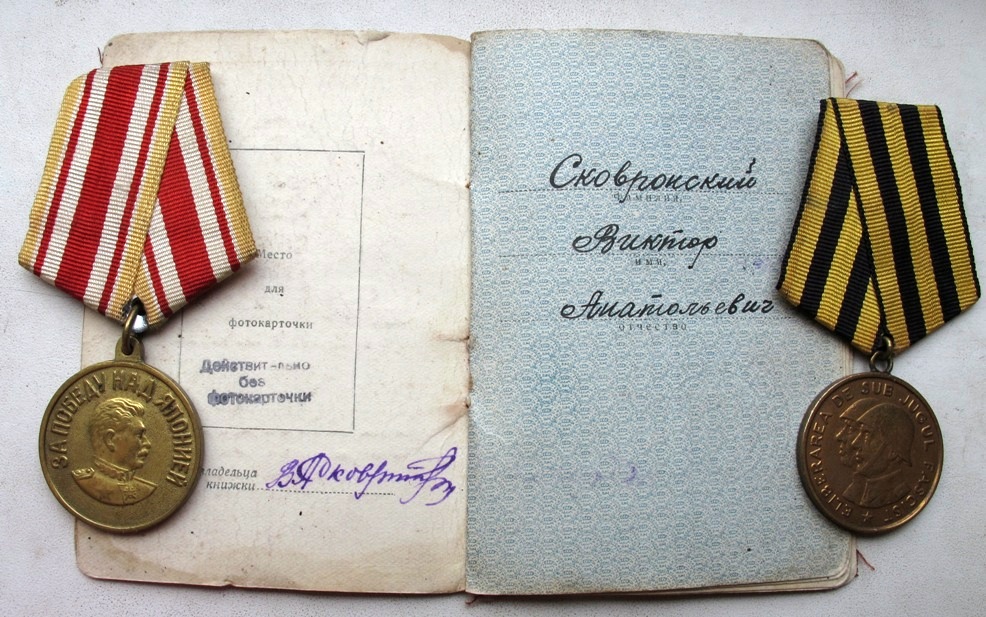 ЗА ПОБЕДУ НАД ЯПОНИЕЙ
Место
для
фотокарточки
Действительно
без
фотокарточки
владельца
книжки
Сковронский
фамилия,
Виктор
имя,
Анатольевич
отчество
ELIBERAREA DE SUB JUGUL FASCIST